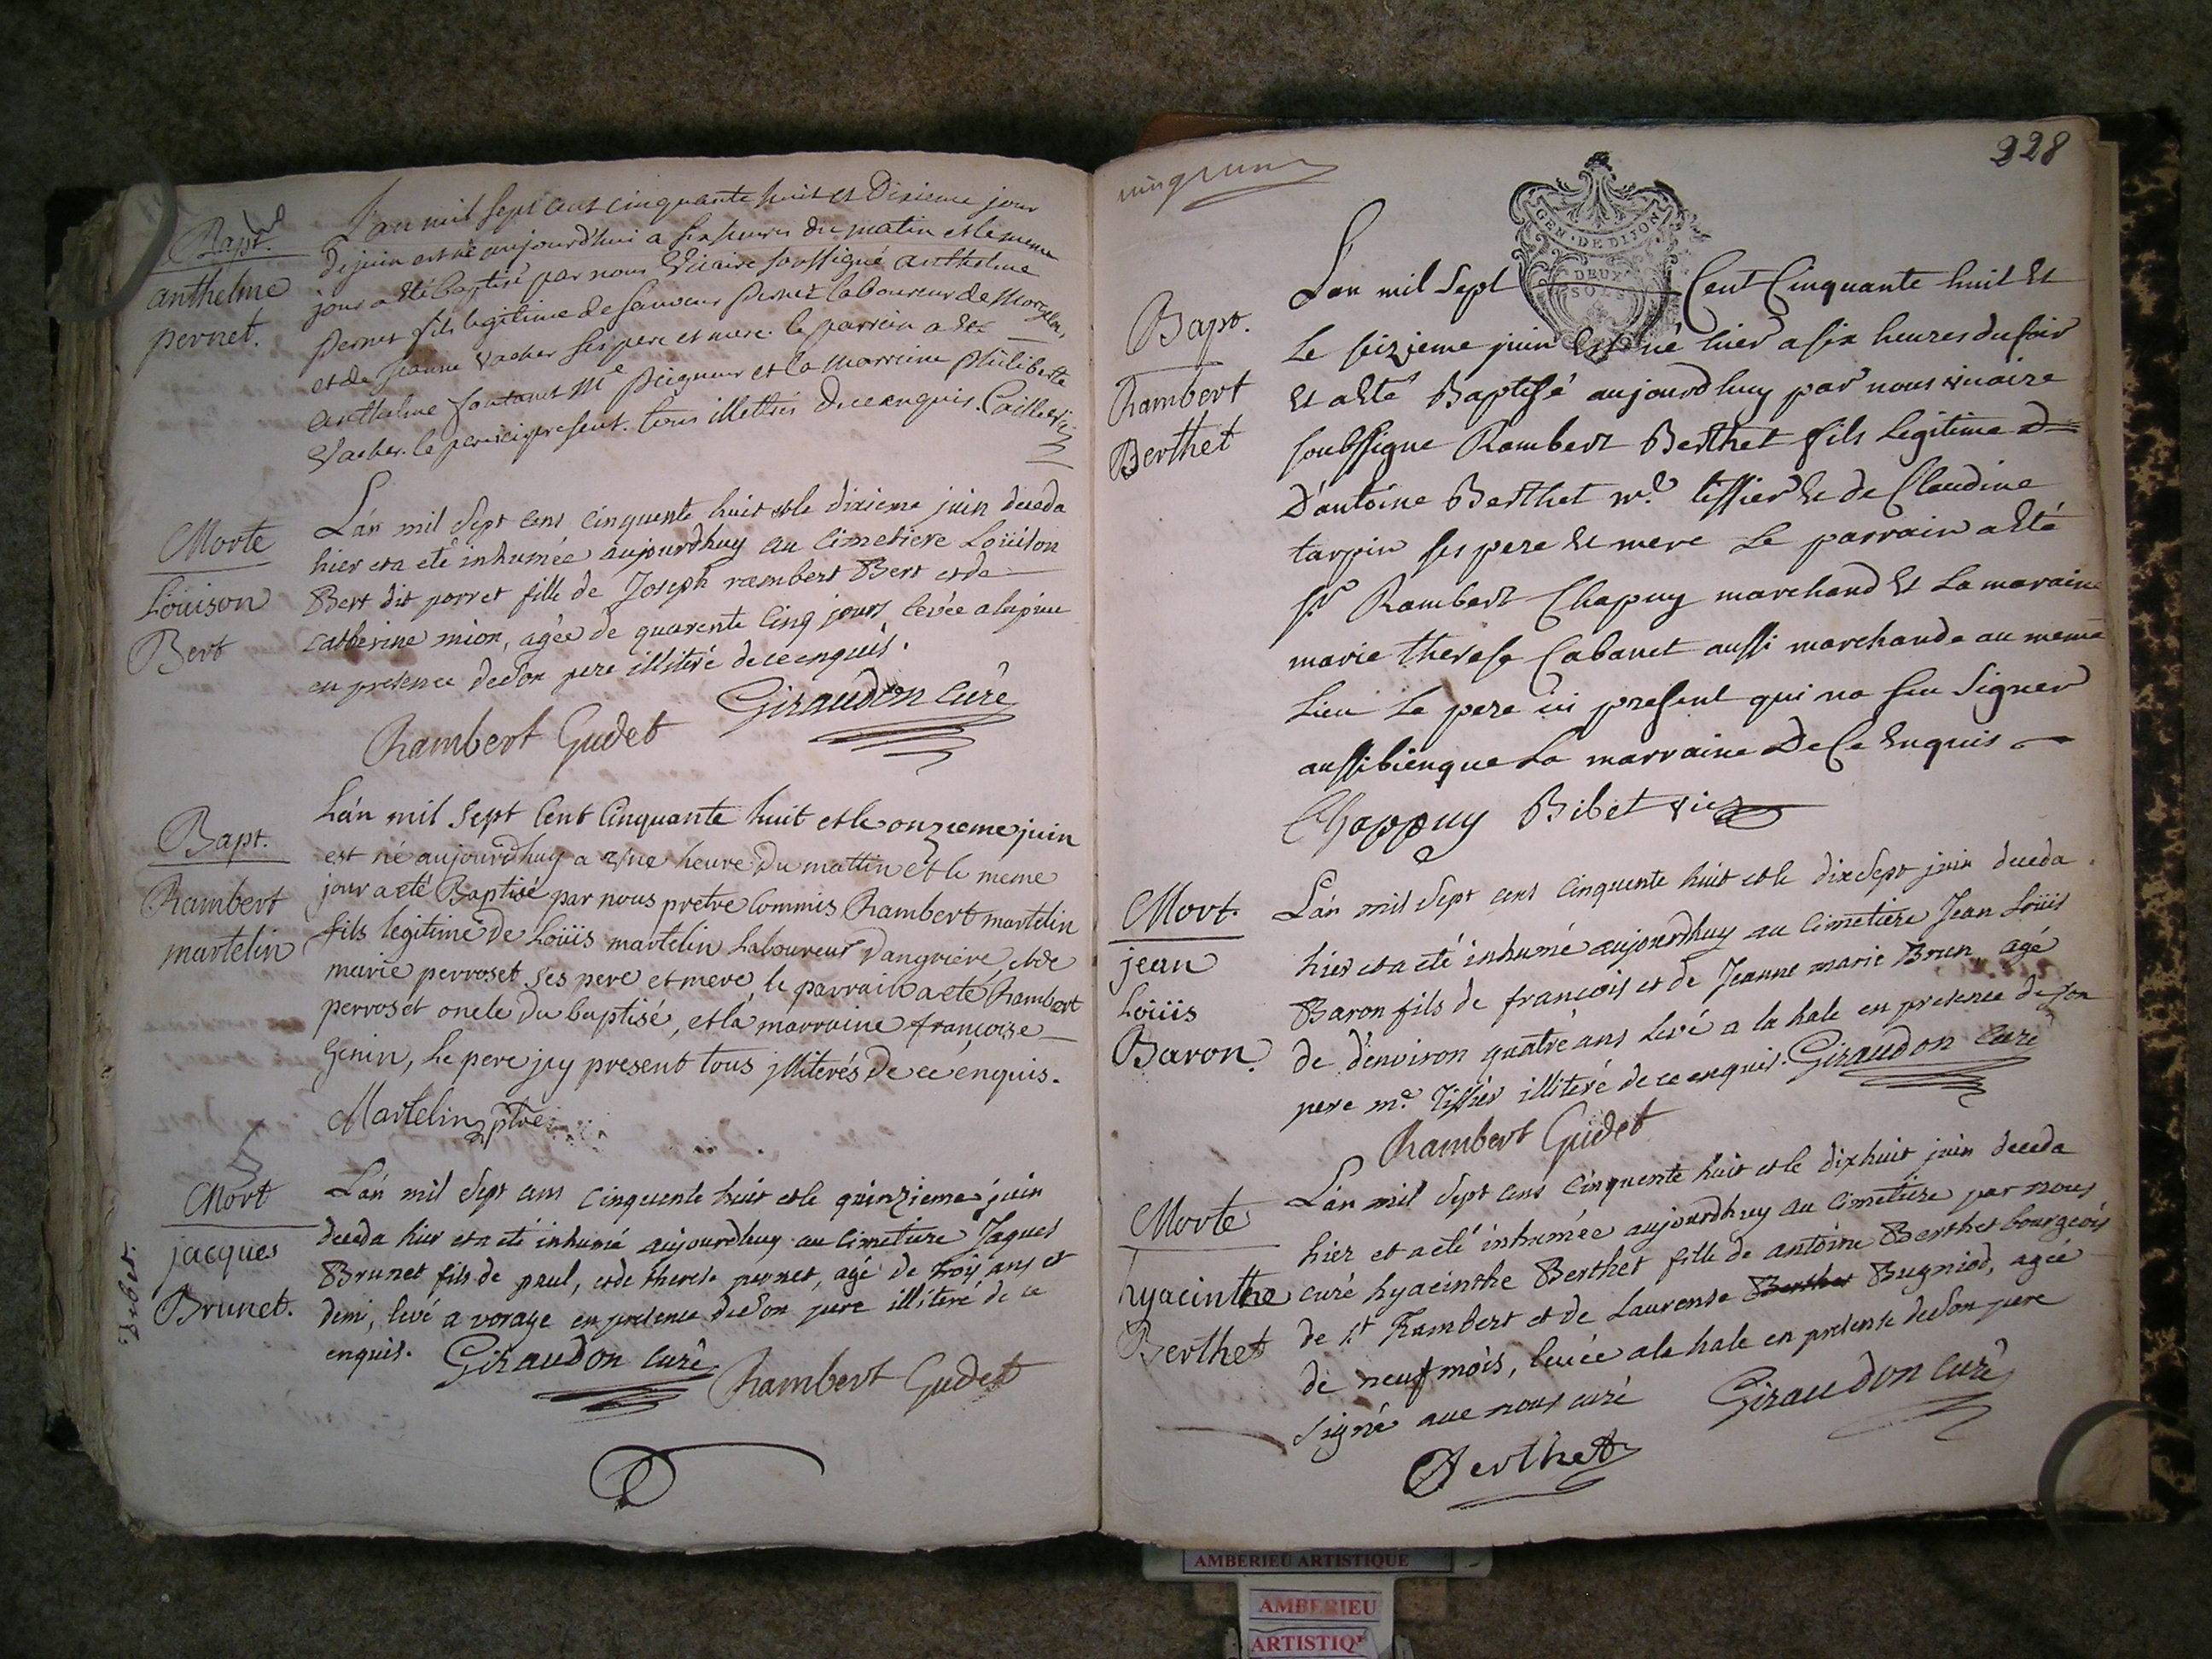 Bapt.
anthelme
pernet.
L'an mil sept cent cinquante huit et Dixieme jour
de juin est né aujourd'hui a six heures du matin et le meme
jour a été baptisé par nous Vicaire soussigné anthelme
pernet fils legitime de sauveur pernet laboureur de
et de jeanne Vacher ses pere et mere. le parrein a été
anthelme fontanet Me peigneur et la marreine philiberte
Vacher. le pere ici present. tous illettrés de ce enquis.
Morte
Louison
Bert
L'an mil Sept cens cinquente huit et le dixieme juin deceda
hier et a eté inhumée aujourdhuy au cimetiere Loüison
Bert dit porret fille de Joseph rambert Bert et de
catherine mion, agée de quarente cinq jours, levée
en presence de son pere illitéré de ce enquis.
Giraudon curé
Rambert Gudet
Bapt.
Rambert
martelin
L'an mil Sept Cent Cinquante huit et le onzieme juin
est né aujourdhuy a Vne heure du mattin et le meme
jour a eté Baptisé par nous pretre Commis Rambert martelin
fils legitime de Loüis martelin Laboureur Dangriere et de
marie perroset ses pere et mere, le parrain a eté Rambert
perroset oncle du baptisé, et la marraine françoise
Genin, Le pere jcy present tous jllitérés de ce enquis.
Martelin ptre
Mort
jacques
Brunet.
L'an mil Sept cens cinquente huit et le quinzieme juin
deceda hier et a eté inhumé aujourdhuy au cimetiere Jaques
Brunet fils de paul, et de therese pernet, agé de trois ans et
demi, levé a vorage en presence de son pere illiteré de ce
enquis. Giraudon curé
Rambert Gudet
228
GEN·DE DIJON
DEUX
SOLS
Bapt.
Rambert
Berthet
L'an mil Sept Cent Cinquante huit et
Le seizieme juin est né hier a six heures du soir
et a eté Baptisé aujourdhuy par nous vicaire
soubssigne Rambert Berthet fils Legitime d
D'antoine Berthet me tissier et de Claudine
tarpin ses pere et mere Le parrain a eté
sr Rambert Chapuy marchand et La maraine
marie therese Cabanet aussi marchande au meme
Lieu Le pere ici present qui na seu Signer
aussi bien que La marraine De Ce Enquis
Chappuy Bibet vic
Mort.
jean
Loüis
Baron.
L'an mil Sept cens cinquente huit et le dix Sept juin deceda
hier et a eté inhumé aujourdhuy au cimetiere Jean Loüis
Baron fils de francois et de Jeanne marie Brun, agé
de d'environ quatre ans Levé a la hale en presence de son
pere me Tissier illiteré de ce enquis. Giraudon curé
Rambert Gudet
Morte
hyacinthe
Berthet
L'an mil Sept cens cinquente huit et le dixhuit juin deceda
hier et a eté inhumée aujourdhuy au cimetiere par nous
curé hyacinthe Berthet fille de antoine Berthet bourgeois
de St Rambert et de Laurense Berthet Bugniod, agée
de neuf mois, levée a la hale en presence de son pere
signé avec nous curé Giraudon curé
Berthet
AMBERIEU ARTISTIQUE
AMBERIEU
ARTISTIQ